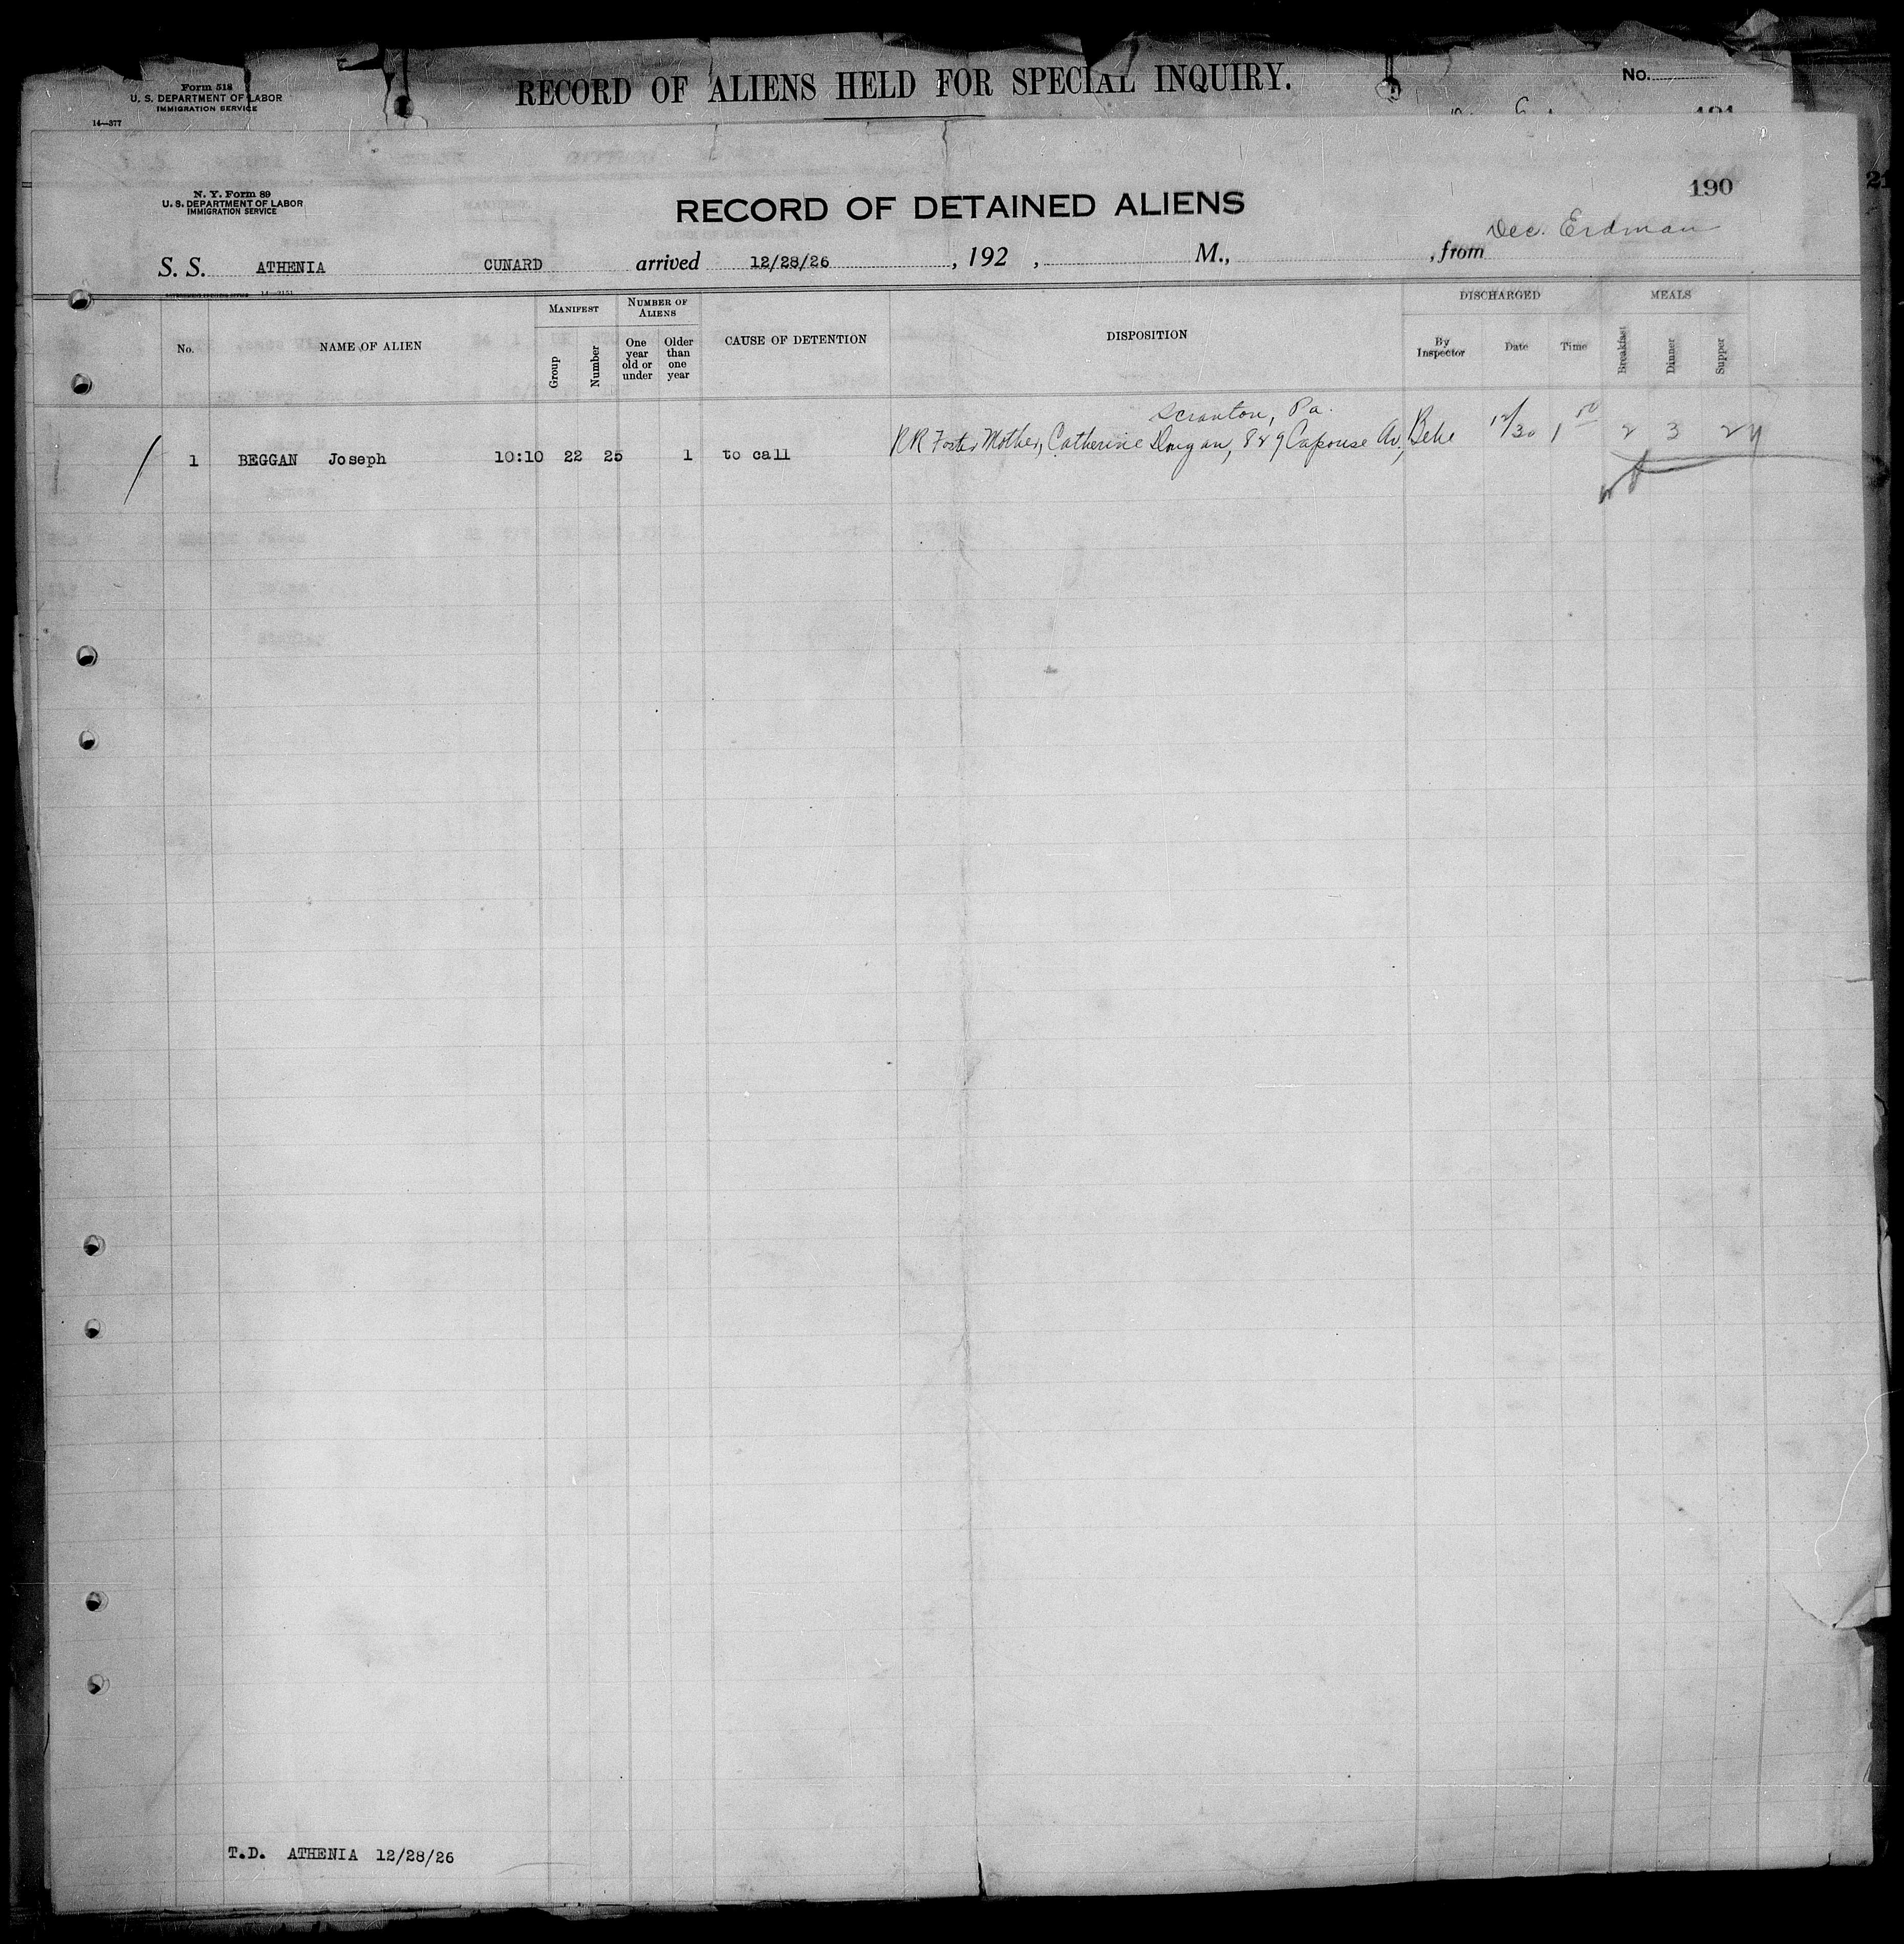 Form 518
U. S. DEPARTMENT OF LABOR
IMMIGRATION SERVICE
14—377
RECORD OF ALIENS HELD FOR SPECIAL INQUIRY.
No.
N. Y. Form 89
U. S. DEPARTMENT OF LABOR
IMMIGRATION SERVICE
RECORD OF DETAINED ALIENS
190
21
Dec. Erdman
S. S. ATHENIA CUNARD arrived 12/28/26 , 192 , M., , from
No.
NAME OF ALIEN
MANIFEST
Group
Number
NUMBER OF ALIENS
One year old or under
Older than one year
CAUSE OF DETENTION
DISPOSITION
DISCHARGED
By Inspector
Date
Time
MEALS
Breakfast
Dinner
Supper
Scranton, Pa.
1 BEGGAN Joseph 10:10 22 25 1 to call RR Foster Mother, Catherine 829 Capouse Av., 12/30 1 50 2 3 2
T.D. ATHENIA 12/28/26